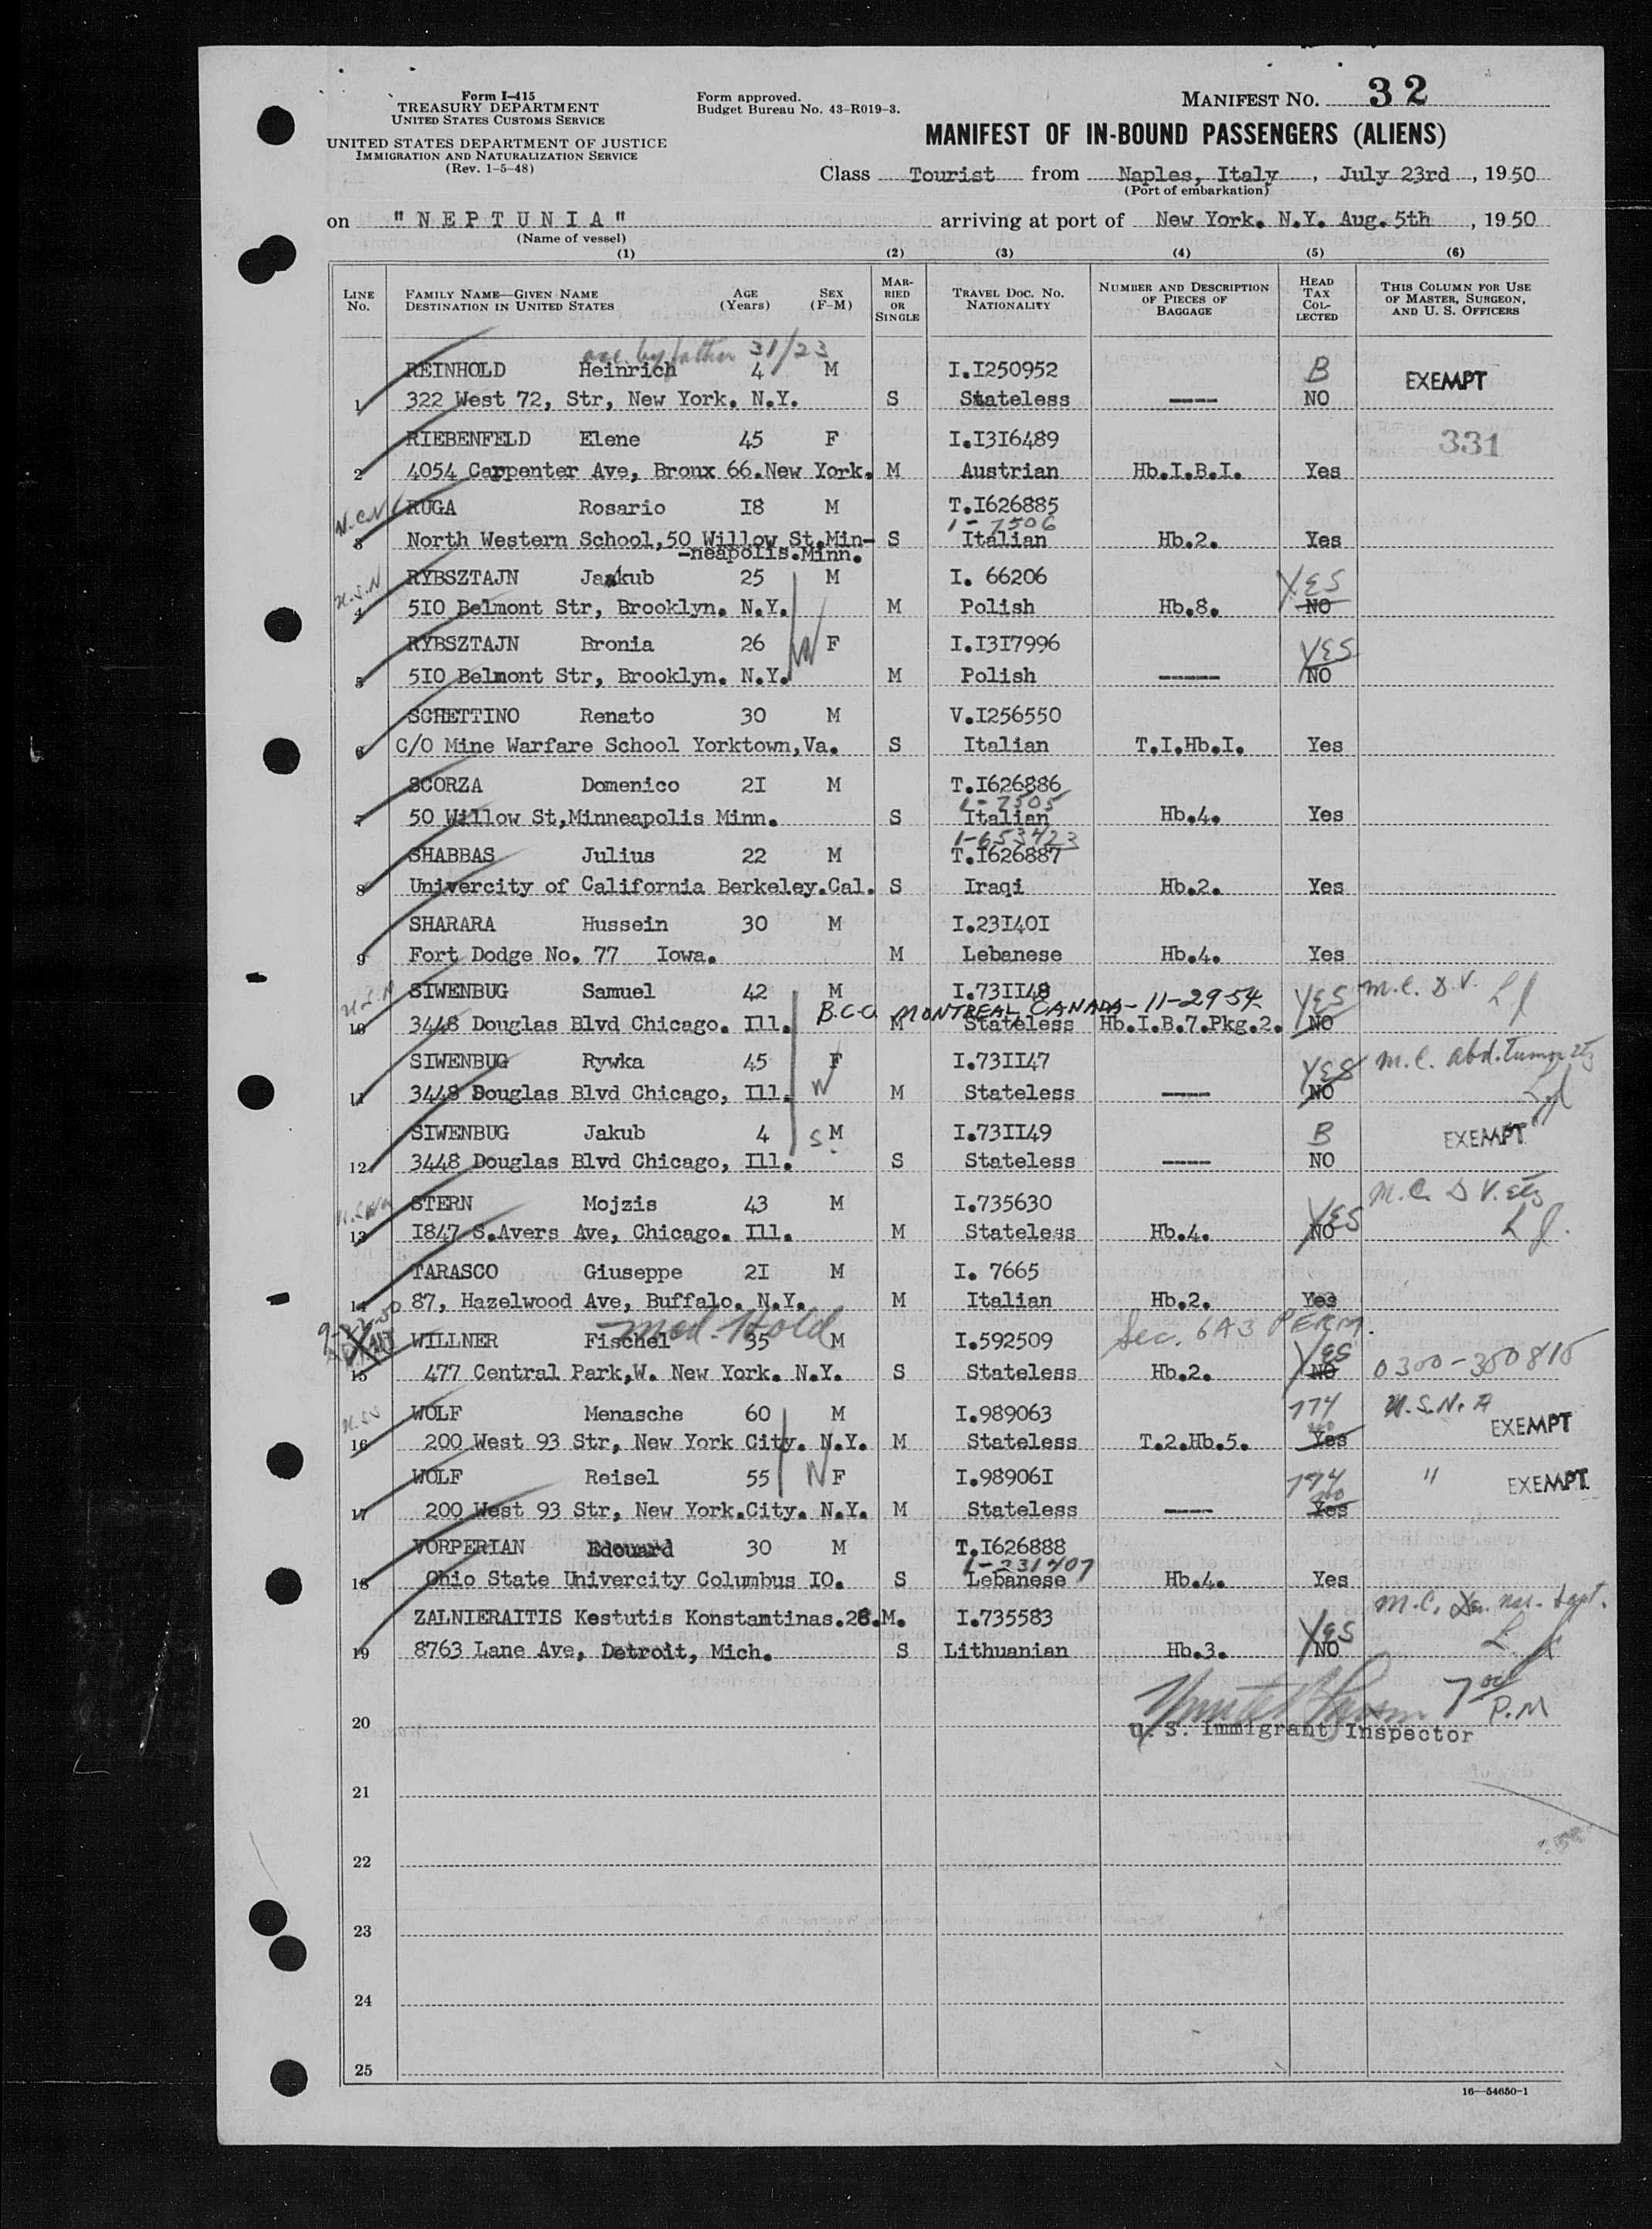 Form I-415
TREASURY DEPARTMENT
UNITED STATES CUSTOMS SERVICE
UNITED STATES DEPARTMENT OF JUSTICE
IMMIGRATION AND NATURALIZATION SERVICE
(Rev. 1-5-48)
Form approved.
Budget Bureau No. 43-R019-3.
MANIFEST NO. 32
MANIFEST OF IN-BOUND PASSENGERS (ALIENS)
Class Tourist from Naples, Italy, July 23rd, 1950
(Port of embarkation)
on "NEPTUNIA" arriving at port of New York. N.Y. Aug. 5th, 1950
(Name of vessel)
(1) (2) (3) (4) (5) (6)
LINE No. FAMILY NAME—GIVEN NAME DESTINATION IN UNITED STATES AGE (Years) SEX (F-M) MARRIED OR SINGLE TRAVEL DOC. NO. NATIONALITY NUMBER AND DESCRIPTION OF PIECES OF BAGGAGE HEAD TAX COLLECTED THIS COLUMN FOR USE OF MASTER, SURGEON, AND U. S. OFFICERS
by father 31/23
REINHOLD Heinrich 4 M I.I250952 B EXEMPT
1 322 West 72, Str, New York. N.Y. S Stateless ---- NO
RIEBENFELD Elene 45 F I.I3I6489 331
2 4054 Carpenter Ave, Bronx 66.New York. M Austrian Hb.I.B.I. Yes
N.C.N RUGA Rosario I8 M T.I626885
1-7506
3 North Western School,50 Willow St.Min- S Italian Hb.2. Yes
-neapolis.Minn.
RYBSZTAJN Jakub 25 M I. 66206 YES
4 5I0 Belmont Str, Brooklyn. N.Y. M Polish Hb.8. NO
RYBSZTAJN Bronia 26 F I.I3I7996 YES
5 5I0 Belmont Str, Brooklyn. N.Y. M Polish ----- NO
SCHETTINO Renato 30 M V.I256550
6 C/O Mine Warfare School Yorktown,Va. S Italian T.I.Hb.I. Yes
SCORZA Domenico 2I M T.I626886
1-7505
7 50 Willow St,Minneapolis Minn. S Italian Hb.4. Yes
1-653423
SHABBAS Julius 22 M T.I626887
8 Univercity of California Berkeley.Cal. S Iraqi Hb.2. Yes
SHARARA Hussein 30 M I.23I40I
9 Fort Dodge No. 77 Iowa. M Lebanese Hb.4. Yes
SIWENBUG Samuel 42 M I.73II48 YES M.C. D.V.
B.C.C. MONTREAL CANADA-11-29-54
10 3448 Douglas Blvd Chicago. Ill. M Stateless Hb.I.B.7.Pkg.2. NO
SIWENBUG Rywka 45 F I.73II47 YES M.C. abd. tumor
11 3448 Douglas Blvd Chicago, Ill. W M Stateless ---- NO
SIWENBUG Jakub 4 S M I.73II49 B EXEMPT
12 3448 Douglas Blvd Chicago, Ill. S Stateless ---- NO
STERN Mojzis 43 M I.735630 YES M.C. D V.
13 I847 S.Avers Ave, Chicago. Ill. M Stateless Hb.4. NO
TARASCO Giuseppe 2I M I. 7665
14 87, Hazelwood Ave, Buffalo. N.Y. M Italian Hb.2. Yes
Med. Hold Sec. 6A3 PERM.
WILLNER Fischel 35 M I.592509 YES
15 477 Central Park,W. New York. N.Y. S Stateless Hb.2. NO 0300-350815
WOLF Menasche 60 M I.989063 774 EXEMPT
16 200 West 93 Str, New York City. N.Y. M Stateless T.2.Hb.5. no Yes
WOLF Reisel 55 F I.98906I 774 " EXEMPT
17 200 West 93 Str, New York.City. N.Y. M Stateless ---- no Yes
VORPERIAN Edouard 30 M T.I626888
1-231407
18 Ohio State Univercity Columbus IO. S Lebanese Hb.4. Yes
ZALNIERAITIS Kestutis Konstantinas.28.M. I.735583 YES M.C.
19 8763 Lane Ave, Detroit, Mich. S Lithuanian Hb.3. NO
7 00 P.M
20 U. S. Immigrant Inspector
21
22
23
24
25
16—54650-1